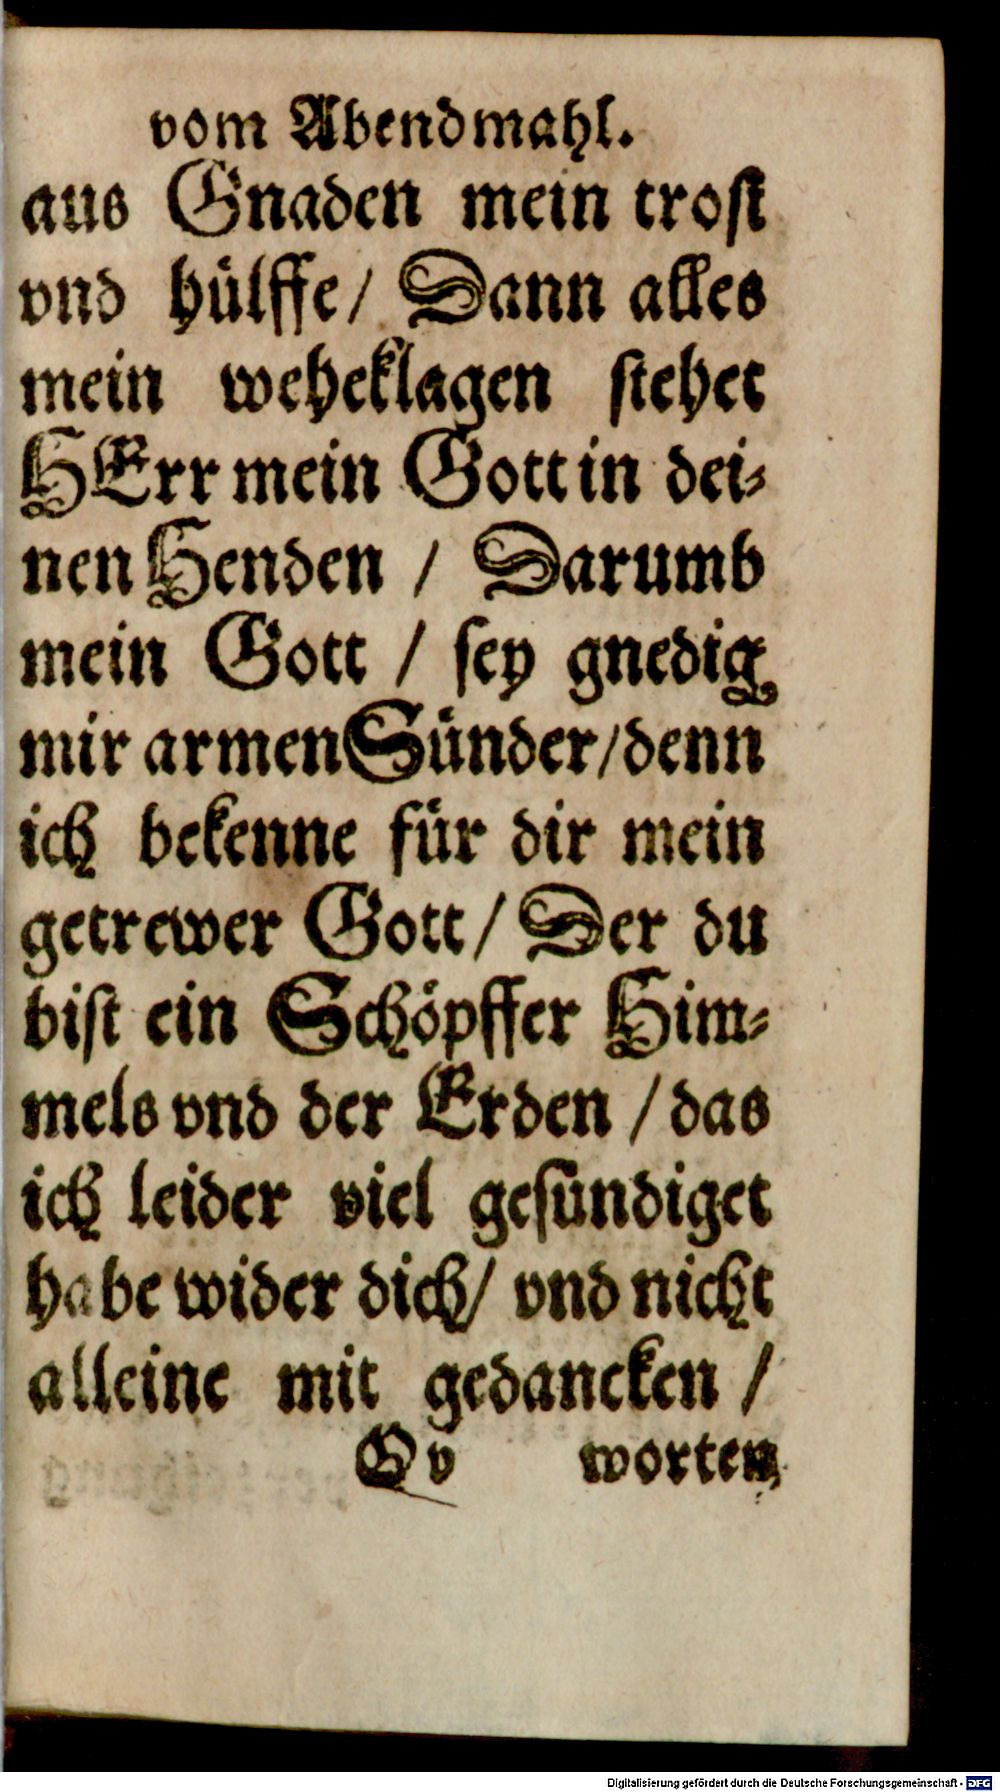 vom Abendmahl.
aus Gnaden mein trost
vnd hülffe/ Dann alles
mein weheklagen stehet
HErr mein Gott in dei-
nen Henden / Darumb
mein Gott / sey gnedig
mir armen Sünder/denn
ich bekenne für dir mein
getrewer Gott/ Der du
bist ein Schöpffer Him-
mels vnd der Erden / das
ich leider viel gesündiget
habe wider dich/ vnd nicht
alleine mit gedancken /
Q v worten,
Digitalisierung gefördert durch die Deutsche Forschungsgemeinschaft - DFG